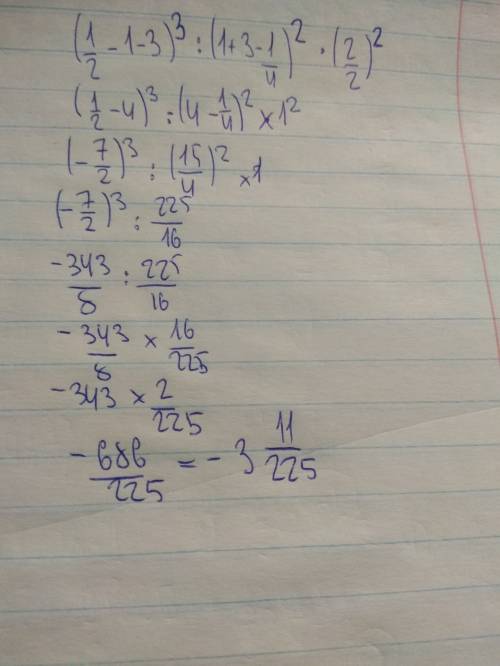 (1/2 - 1 - 3)³ : (1+3-1/4)² · (2/2)²
(1/2 - 4)³ : (4 - 1/4)² × 1²
(-7/2)³ : (15/4)² × 1
(-7/2)³ : 225/16
-343/8 : 225/16
-343/8 × 16/225
-343 × 2/225
-686/225 = -3 11/225